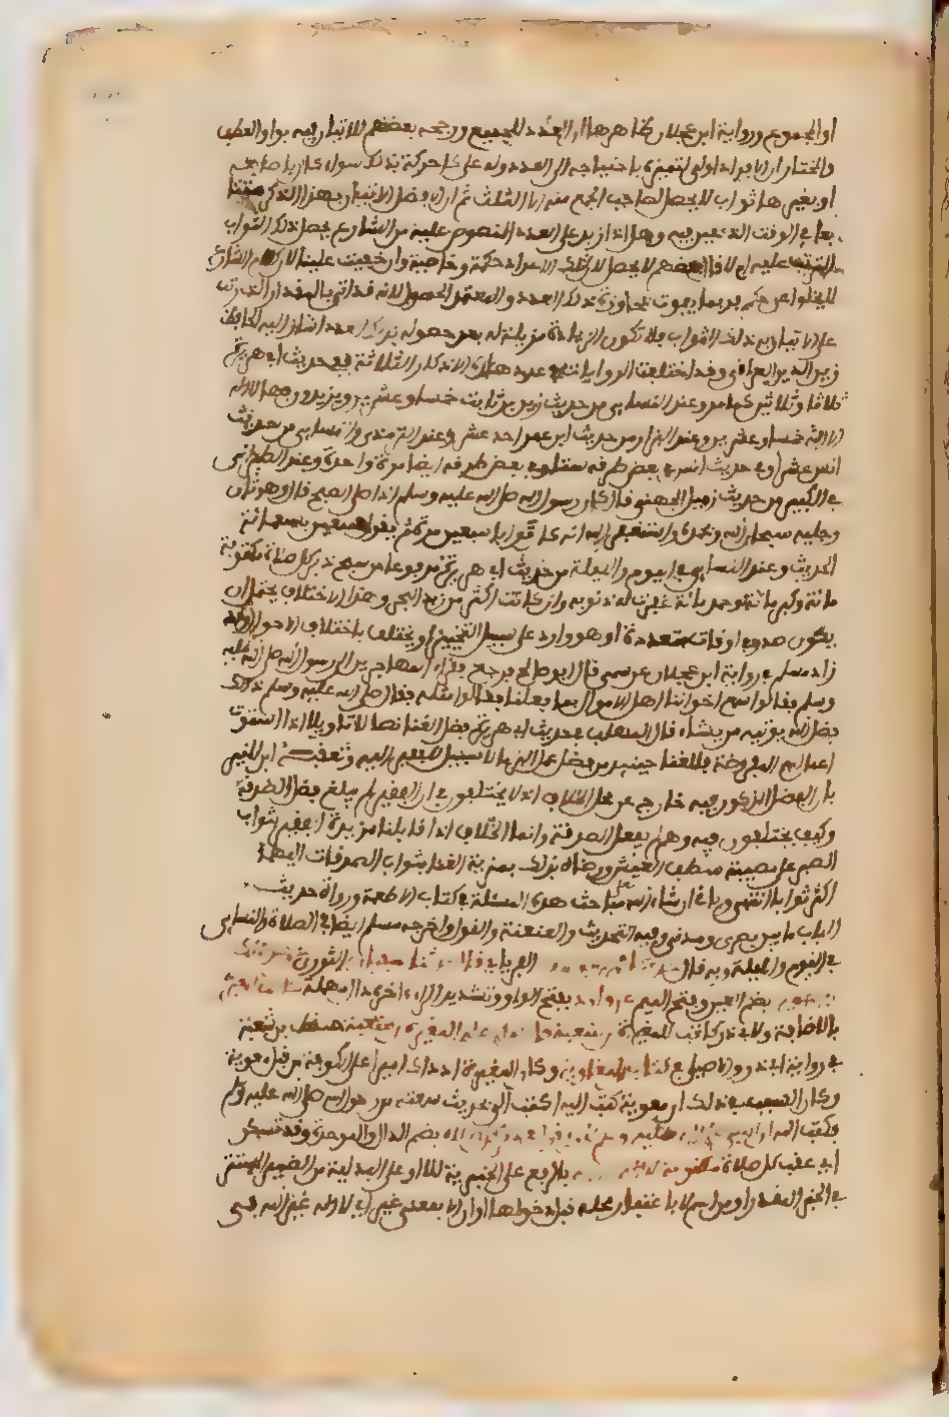 او المجموع ورواية ابن عجلان ظاهرها ان العدد للجميع ورجحه بعضهم للاتيان فيه بواو العطف
والمختار ان الافراد اولى لتميزه باحتياجه الى العدد وله على كل حركة لذلك سواء كان باصابعه
او بغيرها ثواب لا يحصل لصاحب الجمع منه الا الثلث ثم ان الافضل الاتيان بهذا الذكر متتابعا
في الوقت الذي عين فيه وهل اذا زيد على العدد المنصوص عليه من الشارع يحصل ذلك الثواب
المترتب عليه ام لا قال بعضهم لا يحصل لان لتلك الاعداد حكمة وخاصية وان خفيت علينا لان كلام الشارع
لا يخلوا عن حكم فربما يفوت بمجاوزة ذلك العدد والمعتمد الحصول لانه قد اتى بالمقدار الذي رتب
على الاتيان به ذلك الثواب فلا تكون الزيادة مزيلة له بعد حصوله بذلك العدد اشار اليه الحافظ
زين الدين العراقي وقد اختلفت الروايات في عدد هذه الاذكار الثلاثة ففي حديث ابي هريرة
ثلاثا وثلاثين كما مر وعند النسائي من حديث زيد بن ثابت خمسا وعشرين ويزيدون فيها لا اله
الا الله خمسا وعشرين وعند البزار من حديث ابن عمر احد عشر وعند الترمذي والنسائي من حديث
انس عشرا وفي حديث انس في بعض طرقه ستا وفي بعض طرقه ايضا مرة واحدة وعند الطبراني
في الكبير من حديث زميل الجهني قال كان رسول الله صلى الله عليه وسلم اذا صلى الصبح قال وهو ثان
رجليه سبحان الله وبحمده واستغفر الله انه كان توابا سبعين مرة ثم يقول سبعين بسبعمائة
الحديث وعند النسائي في اليوم والليلة من حديث ابي هريرة مرفوعا من سبح دبر كل صلاة مكتوبة
مائة وكبر مائة وحمد مائة غفرت له ذنوبه وان كانت اكثر من زبد البحر وهذا الاختلاف يحتمل ان
يكون صدر في اوقات متعددة او هو وارد على سبيل التخيير او يختلف باختلاف الاحوال وقد
زاد مسلم في رواية ابن عجلان عن سمي قال ابو صالح فرجع فقراء المهاجرين الى رسول الله صلى الله عليه
وسلم فقالوا سمع اخواننا اهل الاموال بما فعلنا ففعلوا مثله فقال صلى الله عليه وسلم ذلك
فضل الله يوتيه من يشاء قال المهلب في حديث ابي هريرة فضل الغنا نصا لا تاويلا اذا استوت
اعمالهم المفروضة فللغنا حينئذ من فضل عمل البر ما لا سبيل للفقير اليه وتعقبه ابن المنير
بان الفضل المذكور فيه خارج عن محل الخلاف اذ لا يختلفون في ان الفقير لم يبلغ فضل الصدقة
وكيف يختلفون فيه وهو لم يفعل الصدقة وانما الخلاف اذا قابلنا مزية الفقير بثواب
الصبر على مصيبة شظف العيش ورضاه بذلك بمزية الغنا بثواب الصدقات ايهما
اكثر ثوابا انتهى وياتي ان شاء الله مباحث هذه المسئلة في كتاب الاطعمة ورواة حديث
الباب ما بين بصري ومدني وفيه التحديث والعنعنة والقول واخرجه مسلم ايضا في الصلاة والنسائي
في اليوم والليلة وبه قال الفريابي قال حدثنا سفيان الثوري
بضم العين وفتح الميم عن وراد بفتح الواو وتشديد الراء اخره دال مهملة
بالاضافة ولابي ذر كاتب للمغيرة بن شعبة قال املى علي المغيرة بن شعبة
في رواية ابي ذر والاصيلي في كتاب الى معاوية وكان المغيرة اذ ذاك اميرا على الكوفة من قبل معوية
وكان السبب في ذلك ان معوية كتب اليه اكتب الي بحديث سمعته من رسول الله صلى الله عليه وسلم
فكتب اليه ان النبي صلى الله عليه وسلم كان يقول في دبر بضم الدال والموحدة وقد تسكن
اي عقب كل صلاة مكتوبة لا اله بالرفع على الخبرية للا او على البدلية من الضمير المستتر
في الخبر المقدر او من اسم لا باعتبار محله قبل دخولها او ان الا بمعنى غير اي لا اله غير الله في